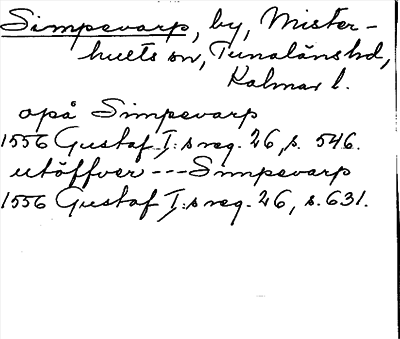 Simpevarp, by, Mister-
hults sn, Tunaläns hd,
Kalmar l.
opå Simpevarp
1556 Gustaf I:s reg. 26, s. 546.
utöffver --- Simpevarp
1556 Gustaf I:s reg. 26, s. 631.